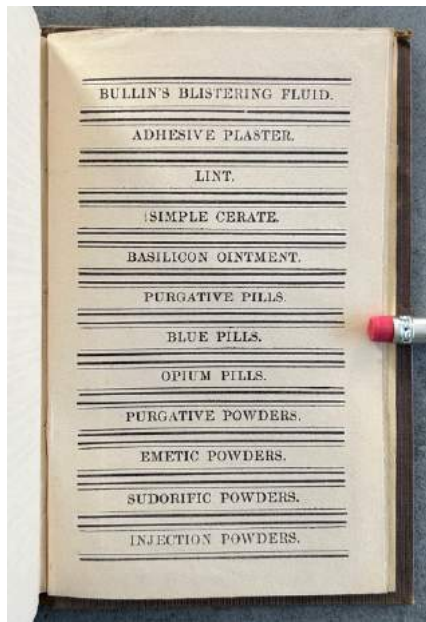 BULLIN'S BLISTERING FLUID.
ADHESIVE PLASTER.
LINT.
SIMPLE CERATE.
BASILICON OINTMENT.
PURGATIVE PILLS.
BLUE PILLS.
OPIUM PILLS.
PURGATIVE POWDERS.
EMETIC POWDERS.
SUDORIFIC POWDERS.
INJECTION POWDERS.